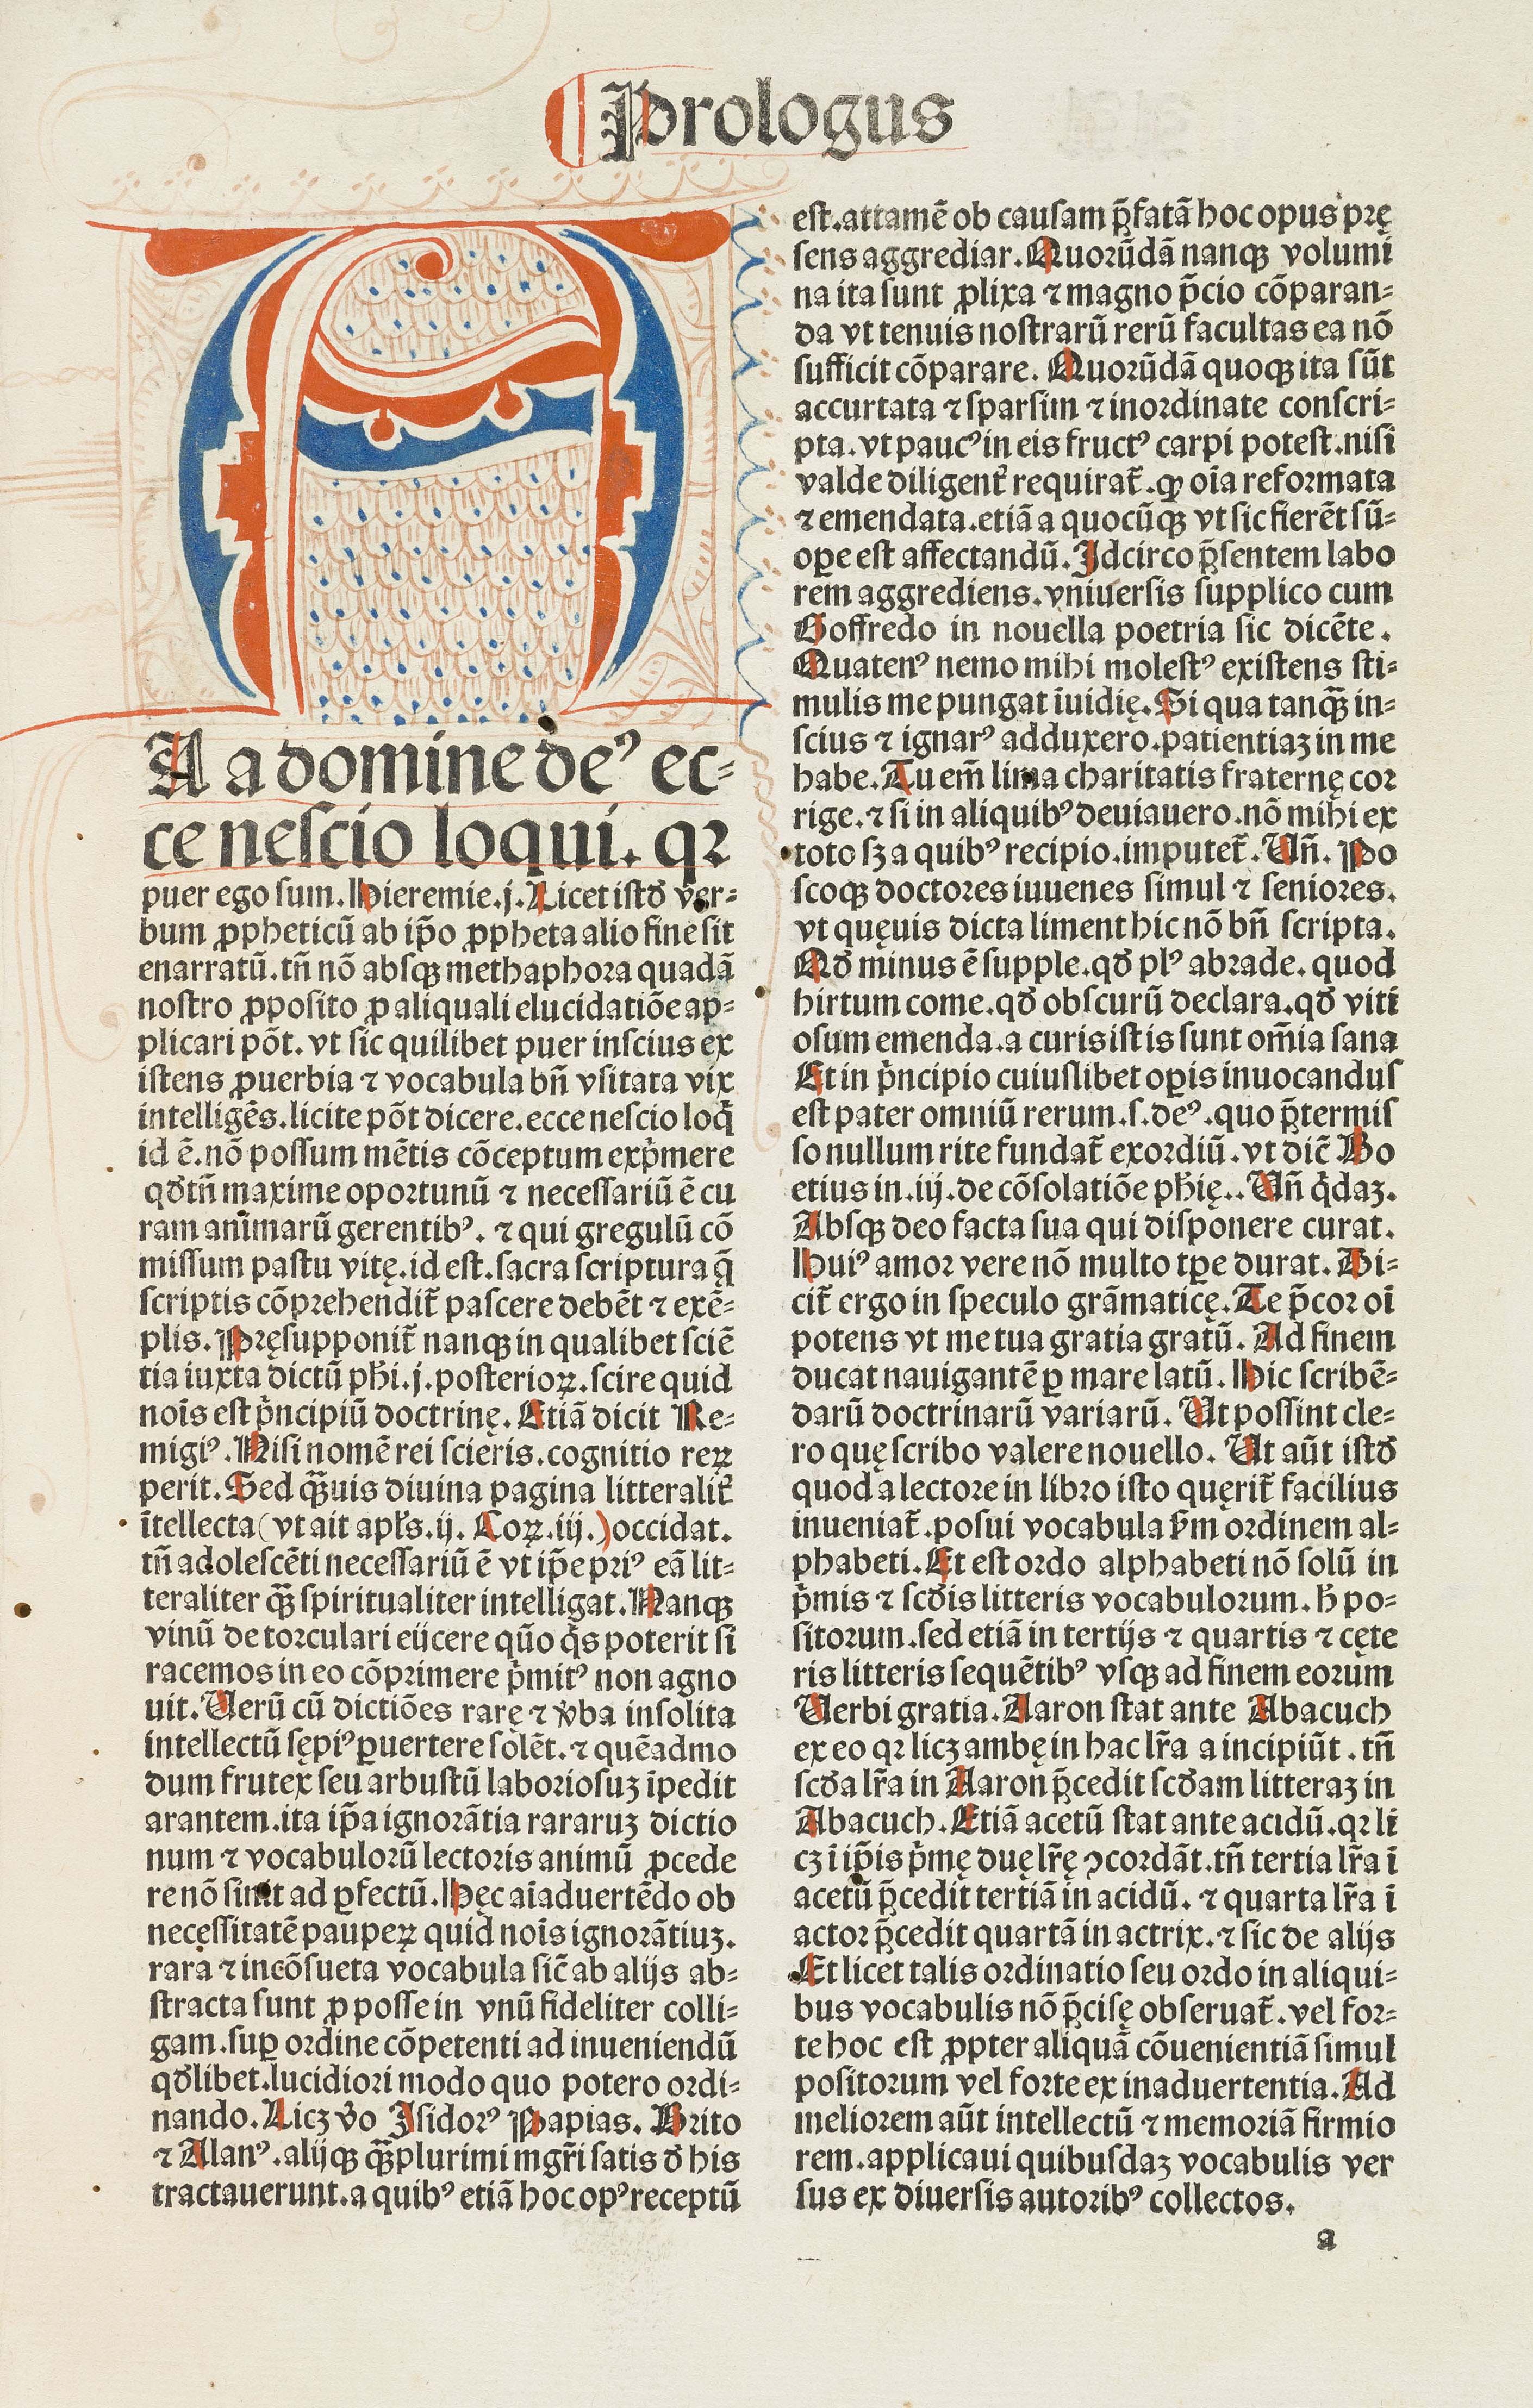 Prologus
A a domine de⁹ ec-
ce nescio loqui. qꝛ
puer ego sum. Hieremie. j. Licet istđ ver-
bum ꝓpheticū ab ip̄o ꝓpheta alio fine sit
enarratū. tn̄ nō absqꝫ methaphora quadā
nostro ꝓposito ꝓ aliquali elucidatiōe ap-
plicari pōt. vt sic quilibet puer inscius ex
istens ꝓuerbia ⁊ vocabula bn̄ vsitata vix
intelligēs. licite pōt dicere. ecce nescio loq̇
id ē. nō possum mētis cōceptum exṗmere
qđ tn̄ maxime oportunū ⁊ necessariū ē cu
ram animarū gerentib⁹. ⁊ qui gregulū cō
missum pastu vitę. id est. sacra scriptura q̄
scriptis cōprehendit̄ pascere debēt ⁊ exē-
plis. Pręsupponit̄ nanqꝫ in qualibet sciē
tia iuxta dictū ph̄i. j. posterioꝝ. scire quid
nois̄ est ṗncipiū doctrinę. Etiā dicit Re-
migi⁹. Nisi nomē rei scieris. cognitio reꝝ
perit. Sed qꝫ̄uis diuina pagina litteralit̄
ītellecta (vt ait apl̄s. ij. Coꝝ. iij.) occidat.
tn̄ adolescēti necessariū ē vt ip̄e pri⁹ eā lit-
teraliter qꝫ̄ spiritualiter intelligat. Nanqꝫ
vinū de torculari eijcere quō q̇s poterit si
racemos in eo cōprimere ṗmit⁹ non agno
uit. Uerū cū dictiōes rarę ⁊ v̄ba insolita
intellectū sępi⁹ ꝑuertere solēt. ⁊ quēadmo
dum frutex seu arbustū laboriosuꝫ īpedit
arantem. ita ip̄a ignorātia rararuꝫ dictio
num ⁊ vocabulorū lectoris animū ꝓcede
re nō sinit ad ꝑfectū. Hęc aīaduertēdo ob
necessitatē pauperꝝ quid nois̄ ignorātiuꝫ.
rara ⁊ incōsueta vocabula sic̄ ab alijs ab-
stracta sunt ꝓ posse in vnū fideliter colli-
gam. suꝑ ordine cōpetenti ad inueniendū
qđlibet. lucidiori modo quo potero ordi-
nando. Licꝫ v̄o Isidor⁹ Papias. Brito
⁊ Alan⁹. alijqꝫ qꝫ̄plurimi mgr̄i satis đ his
tractauerunt. a quib⁹ etiā hoc op⁹ receptū
est. attamē ob causam p̄fatā hoc opus prę
sens aggrediar. Quorūdā nanqꝫ volumi
na ita sunt ꝓlixa ⁊ magno p̄cio cōparan-
da vt tenuis nostrarū rerū facultas ea nō
sufficit cōparare. Quorūdā quoqꝫ ita sūt
accurtata ⁊ sparsim ⁊ inordinate conscri-
pta. vt pauc⁹ in eis fruct⁹ carpi potest. nisi
valde diligent̄ requirat̄. qꝫ oīa reformata
⁊ emendata. etiā a quocūqꝫ vt sic fierēt sū-
oꝑe est affectandū. Idcirco p̄sentem labo
rem aggrediens. vniuersis supplico cum
Goffredo in nouella poetria sic dicēte.
Quaten⁹ nemo mihi molest⁹ existens sti-
mulis me pungat īuidię. Si qua tanqꝫ̄ in-
scius ⁊ ignar⁹ adduxero. patientiaꝫ in me
habe. Tu em̄ lima charitatis fraternę cor
rige. ⁊ si in aliquib⁹ deuiauero. nō mihi ex
toto sꝫ a quib⁹ recipio. imputet̄. Un̄. Po
scoqꝫ doctores iuuenes simul ⁊ seniores.
vt quęuis dicta liment hic nō bn̄ scripta.
Qđ minus ē supple. qđ pl⁹ abrade. quod
hirtum come. qđ obscurū declara. qđ viti
osum emenda. a curis istis sunt om̄ia sana
Et in ṗncipio cuiuslibet oꝑis inuocandus
est pater omniū rerum. s. de⁹. quo p̄termis
so nullum rite fundat̄ exordiū. vt dic̄ Bo
etius in. iij. de cōsolatiōe ph̄ię.. Un̄ q̇daꝫ.
Absqꝫ deo facta sua qui disponere curat.
Hui⁹ amor vere nō multo tꝑe durat. Di-
cit̄ ergo in speculo grāmaticę. Te p̄cor oī
potens vt me tua gratia gratū. Ad finem
ducat nauigantē ꝑ mare latū. Hic scribē-
darū doctrinarū variarū. Ut possint cle-
ro quę scribo valere nouello. Ut aūt istđ
quod a lectore in libro isto quęrit̄ facilius
inueniat̄. posui vocabula ẜm ordinem al-
phabeti. Et est ordo alphabeti nō solū in
ṗmis ⁊ scđis litteris vocabulorum. h̄ po-
sitorum. sed etiā in tertijs ⁊ quartis ⁊ cęte
ris litteris sequētib⁹ vsqꝫ ad finem eorum
Uerbi gratia. Aaron stat ante Abacuch
ex eo qꝛ licꝫ ambę in hac lr̄a a incipiūt. tn̄
scđa lr̄a in Aaron p̄cedit scđam litteraꝫ in
Abacuch. Etiā acetū stat ante acidū. qꝛ li
cꝫ ī ip̄is ṗmę duę lr̄ę ꝯcordāt. tn̄ tertia lr̄a ī
acetū p̄cedit tertiā in acidū. ⁊ quarta lr̄a ī
actor p̄cedit quartā in actrix. ⁊ sic de alijs
Et licet talis ordinatio seu ordo in aliqui-
bus vocabulis nō p̄cisę obseruat̄. vel for-
te hoc est ꝓpter aliquā cōuenientiā simul
positorum vel forte ex inaduertentia. Ad
meliorem aūt intellectū ⁊ memoriā firmio
rem. applicaui quibusdaꝫ vocabulis ver
sus ex diuersis autorib⁹ collectos.
a